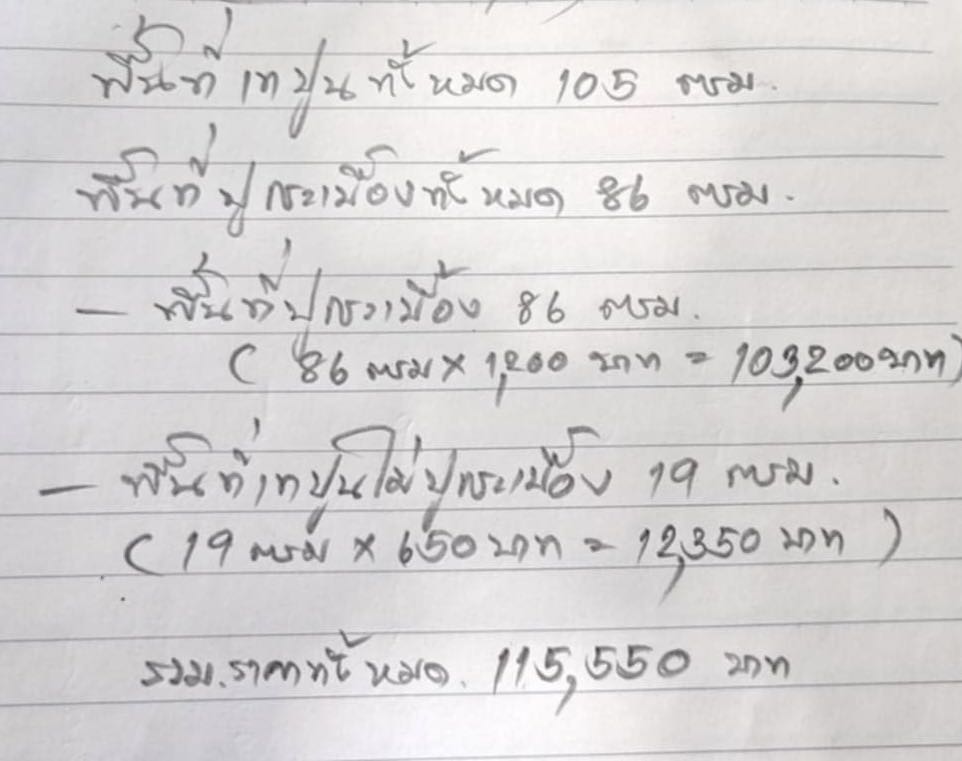 พื้นที่เทปูนทั้งหมด 105 ตรม.
พื้นที่ปูกระเบื้องทั้งหมด 86 ตรม.
— พื้นที่ปูกระเบื้อง 86 ตรม.
( 86 ตรม × 1,200 บาท = 103,200 บาท)
— พื้นที่เทปูนไม่ปูกระเบื้อง 19 ตรม.
( 19 ตรม × 650 บาท = 12,350 บาท )
รวม.ราคาทั้งหมด. 115,550 บาท